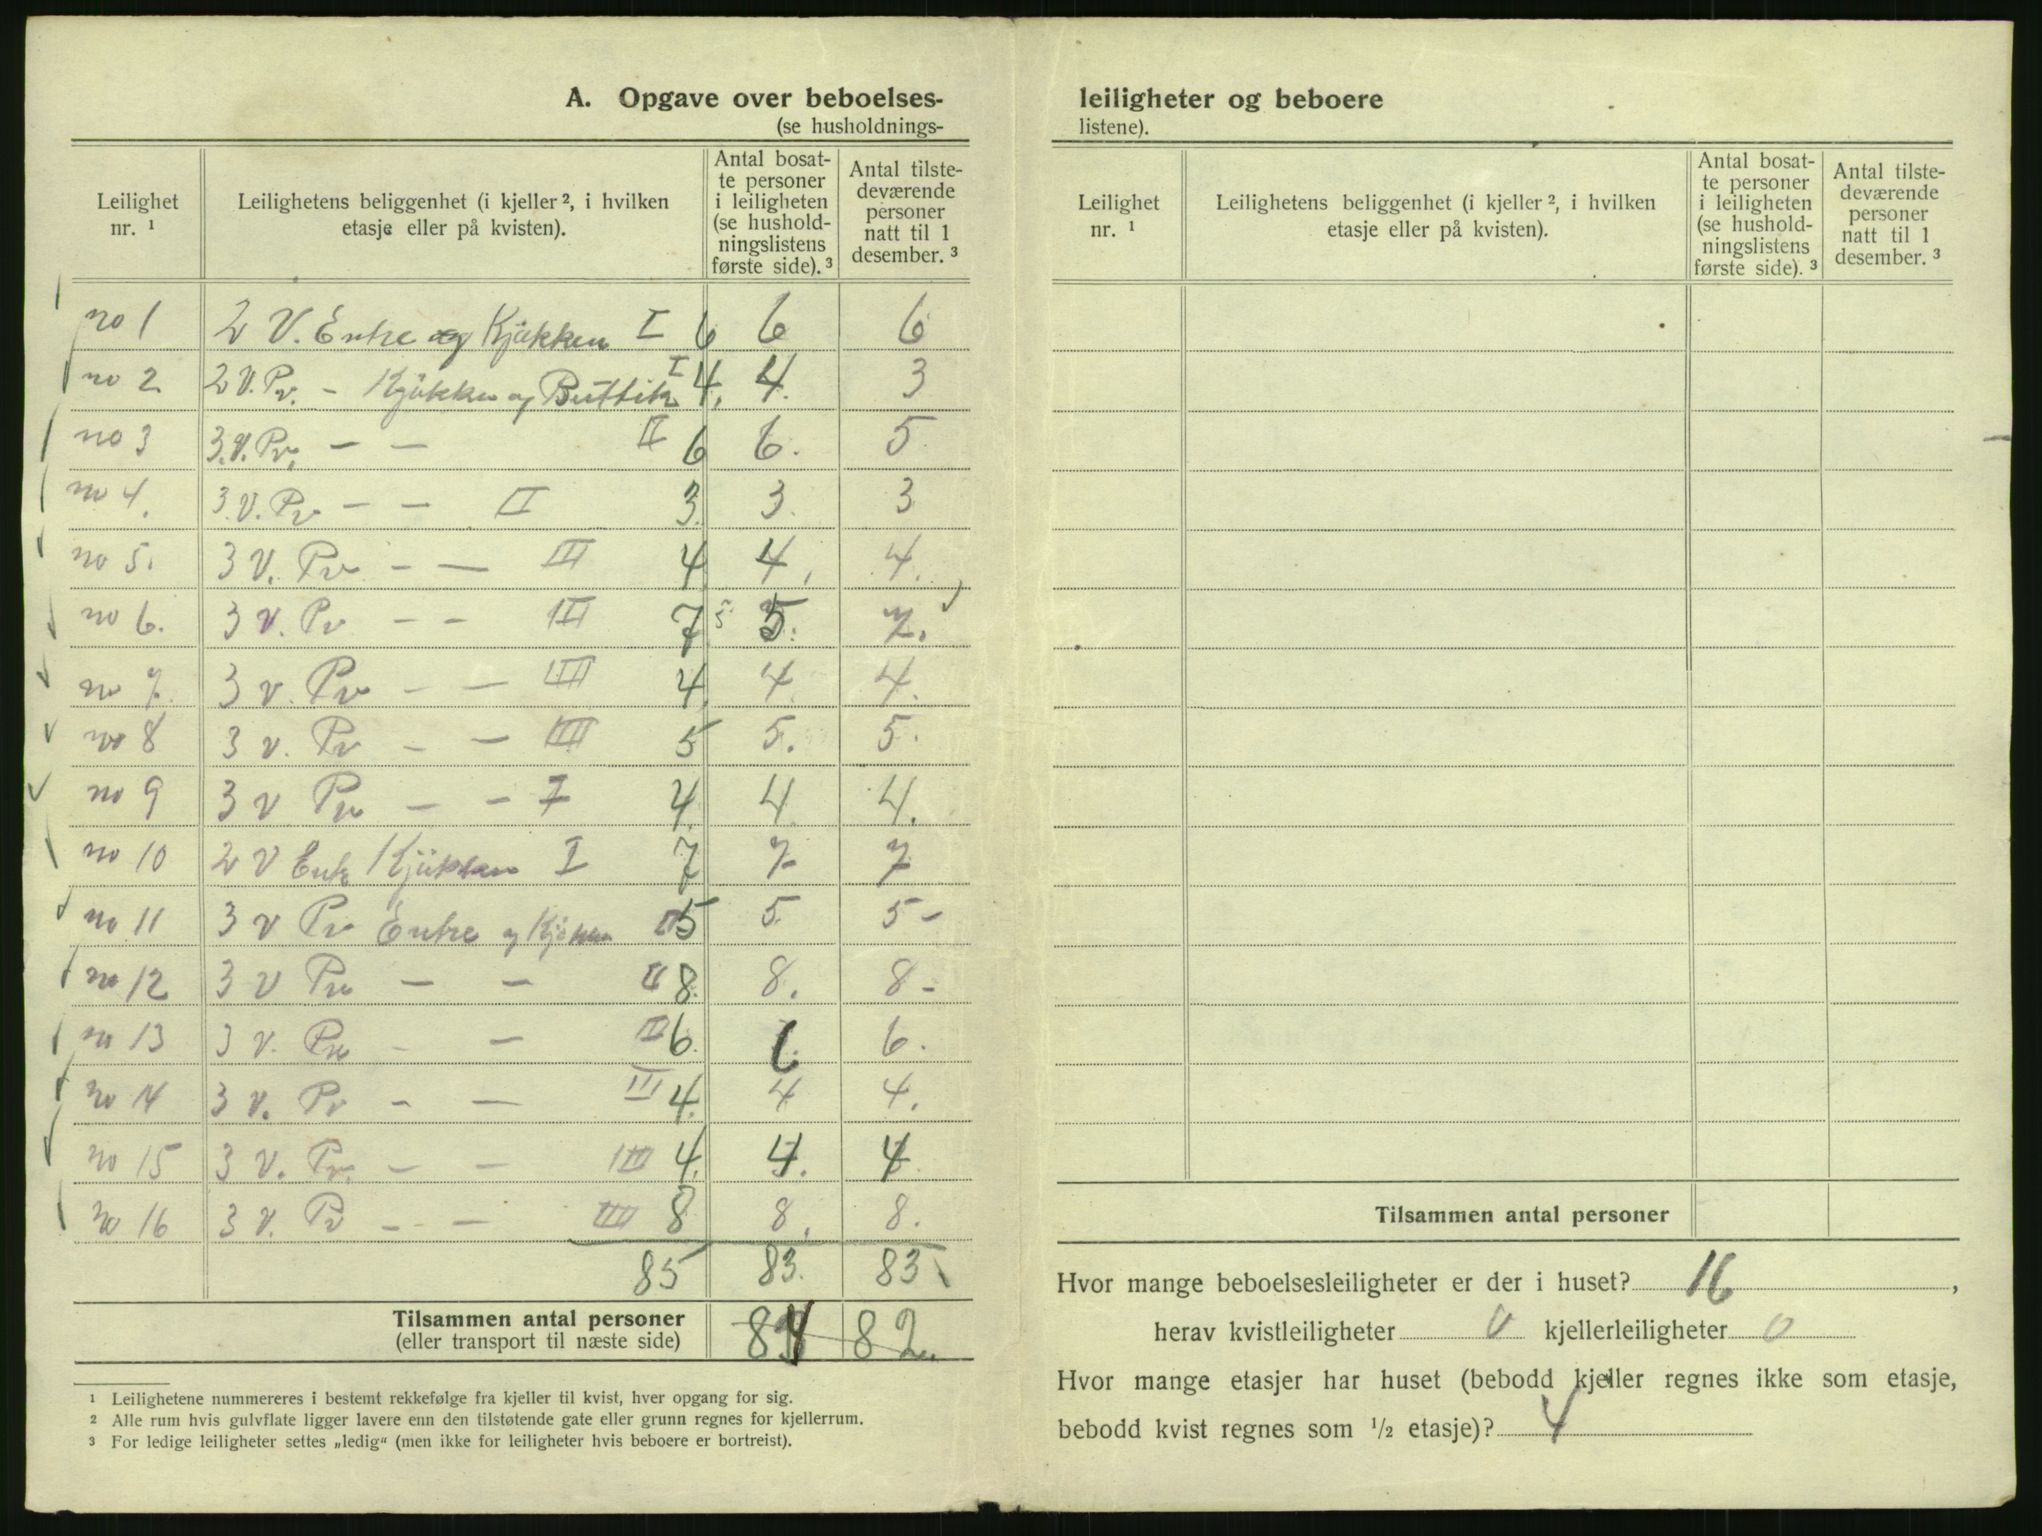 A. Opgave over beboelses-
(se husholdnings-
Leilighet nr. ¹ | Leilighetens beliggenhet (i kjeller ², i hvilken etasje eller på kvisten). | Antal bosatte personer i leiligheten (se husholdningslistens første side). ³ | Antal tilstedeværende personer natt til 1 desember. ³
no 1 2 V. Entre og Kjøkken I 6 6 6
no 2 2 V. Pv. – Kjøkken og Buttik I 4. 4. 3
no 3 3. V. Pv. – – II 6 6. 5
no 4. 3. V. Pv – – II 3. 3. 3
no 5. 3 V. Pv – – III 4 4. 4.
no 6. 3 V. Pv – – III 7 5 5. 7.
no 7. 3 v. Pv – – IIII 4. 4. 4.
no 8 3 v. Pv – – IIII 5 5. 5.
no 9 3 v Pv – – I 4. 4. 4.
no 10 2 V Entr Kjøkken I 7 7 7
no 11 3 v Pv Entre og Kjøken II 5 5. 5 –
no 12 3 V Pv – – II 8. 8. 8 –
no 13 3 v. Pv – – II 6. 6 6.
no 14 3 v. Pv – – III 4. 4 4.
no 15 3 V. Pv. – – IIII 4. 4. 4
no 16 3 V. Pv – – IIII 8 8. 8.
85 83. 83
Tilsammen antal personer
(eller transport til næste side) 84 82.
¹ Leilighetene nummereres i bestemt rekkefølge fra kjeller til kvist, hver opgang for sig.
² Alle rum hvis gulvflate ligger lavere enn den tilstøtende gate eller grunn regnes for kjellerrum.
³ For ledige leiligheter settes „ledig“ (men ikke for leiligheter hvis beboere er bortreist).
leiligheter og beboere
listene).
Leilighet nr. ¹ | Leilighetens beliggenhet (i kjeller ², i hvilken etasje eller på kvisten). | Antal bosatte personer i leiligheten (se husholdningslistens første side). ³ | Antal tilstedeværende personer natt til 1 desember. ³
Tilsammen antal personer
Hvor mange beboelsesleiligheter er der i huset? 16,
herav kvistleiligheter 0 kjellerleiligheter 0
Hvor mange etasjer har huset (bebodd kjeller regnes ikke som etasje,
bebodd kvist regnes som ½ etasje)? 4